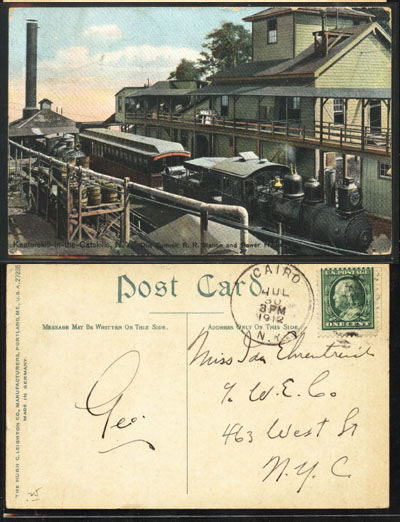 Kaaterskill-in-the-Catskills, N. Y. Otis Summit R. R. Station and Power H
Post Card
MESSAGE MAY BE WRITTEN ON THIS SIDE.
ADDRESS ONLY ON THIS SIDE.
THE HUGH C. LEIGHTON CO., MANUFACTURERS, PORTLAND, ME., U.S.A.
MADE IN GERMANY.
CAIRO
JUL
30
3 PM
1912
N.Y.
ONE CENT
Geo.
Miss Ida Ehrentreich
℅ W. E. Co
463 West St
N.Y.C